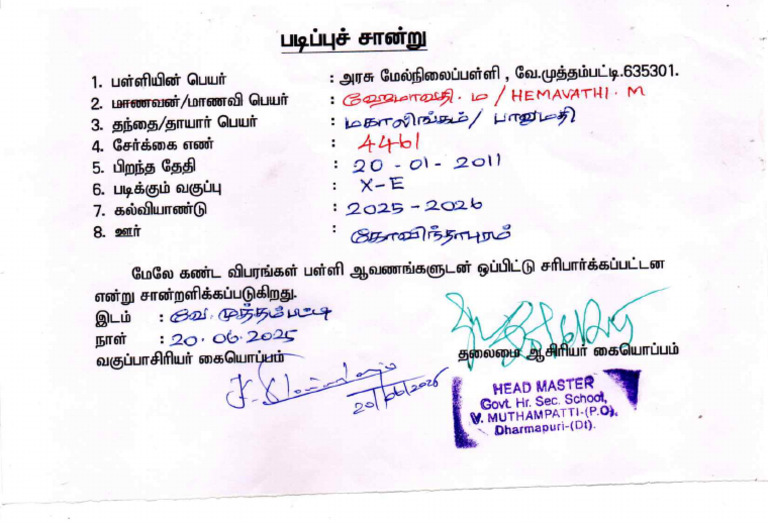 படிப்புச் சான்று
1. பள்ளியின் பெயர் : அரசு மேல்நிலைப்பள்ளி , வே.முத்தம்பட்டி.635301.
2. மாணவன்/மாணவி பெயர் : ஹேமாவதி. ம / HEMAVATHI. M
3. தந்தை/தாயார் பெயர் : மகாலிங்கம்/ பானுமதி
4. சேர்க்கை எண் : 4461
5. பிறந்த தேதி : 20-01-2011
6. படிக்கும் வகுப்பு : X-E
7. கல்வியாண்டு : 2025-2026
8. ஊர் : கோவிந்தாபுரம்
மேலே கண்ட விபரங்கள் பள்ளி ஆவணங்களுடன் ஒப்பிட்டு சரிபார்க்கப்பட்டன
என்று சான்றளிக்கப்படுகிறது.
இடம் : வே.முத்தம்பட்டி
நாள் : 20.06.2025
வகுப்பாசிரியர் கையொப்பம் தலைமை ஆசிரியர் கையொப்பம்
20/06/2025
HEAD MASTER
Govt. Hr. Sec. School,
V. MUTHAMPATTI-(P.O),
Dharmapuri-(Dt).